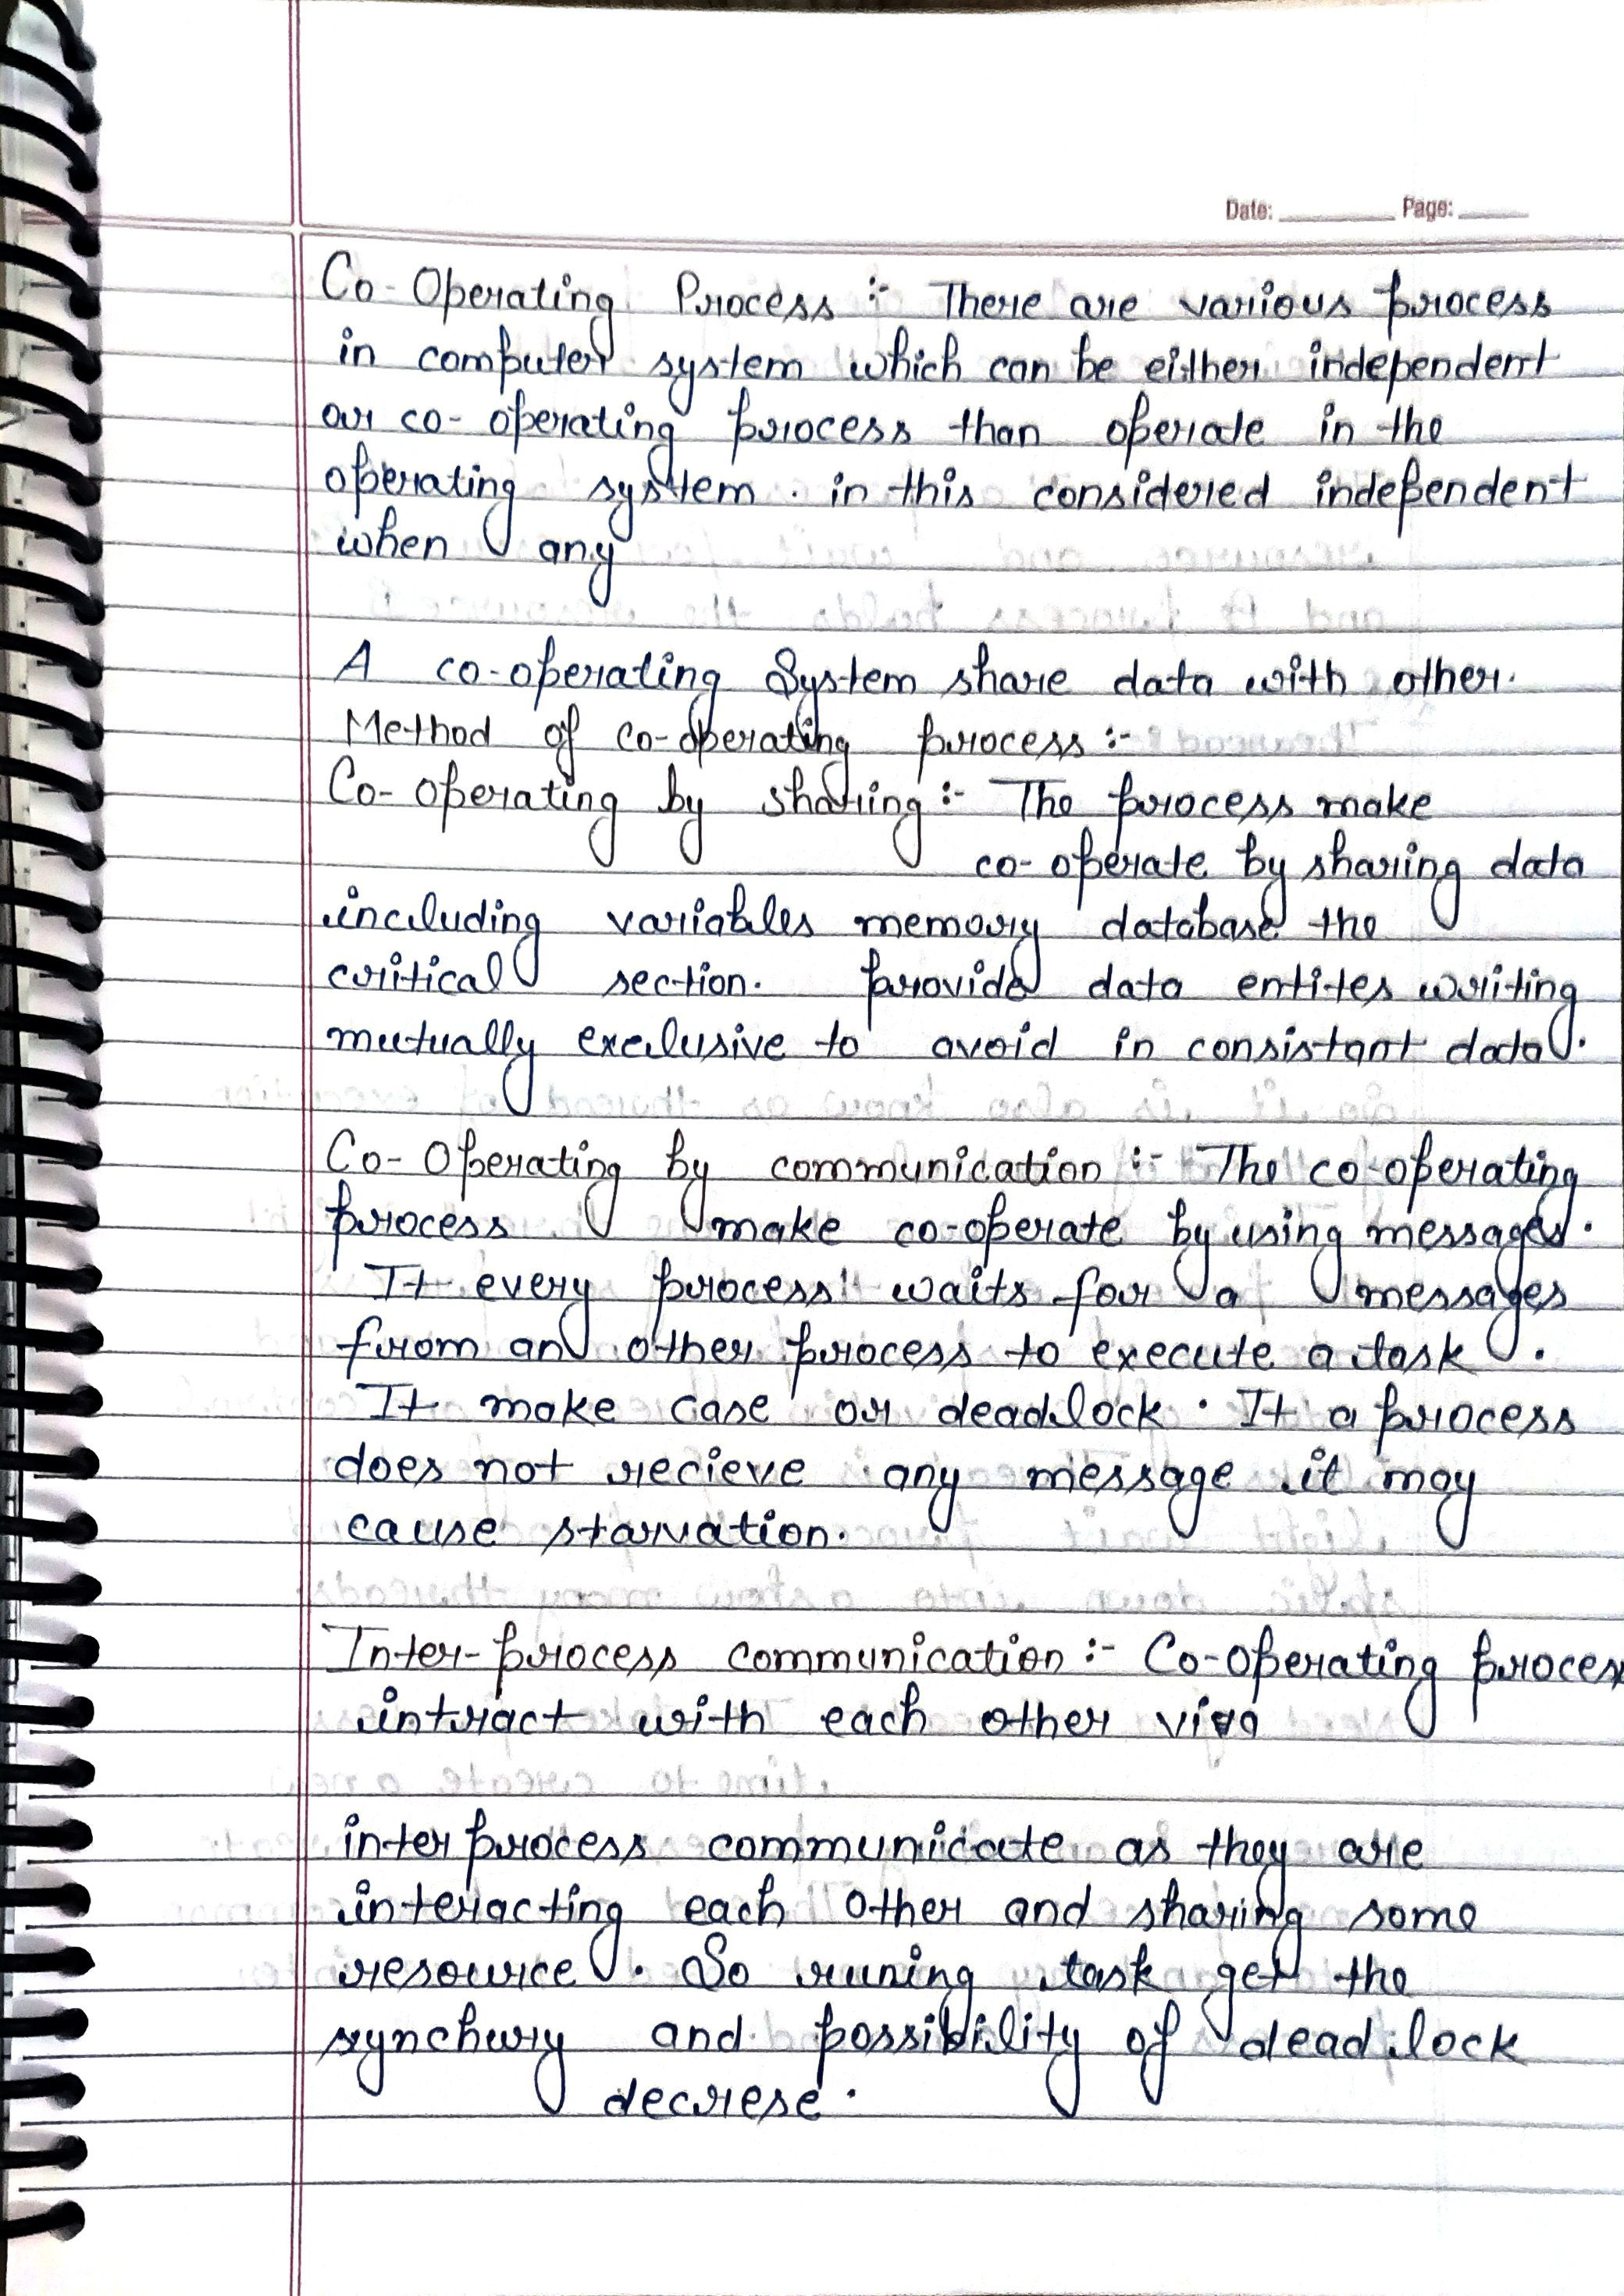 Date: Page:
Co-Operating Process :- There are various process
in computer system which can be either independent
or co-operating process than operate in the
operating system. in this considered independent
when any
A co-operating System share data with other.
Method of co-operating process :-
Co-operating by sharing :- The process make
co-operate by sharing data
including variables memory database the
critical section. provide data entites writing
mutually exclusive to avoid in consistant data.
Co-Operating by communication :- The co-operating
process make co-operate by using messages.
It every process waits for a messages
from an other process to execute a task.
It make case or deadlock. It a process
does not recieve any message it may
cause starvation.
Inter-process communication :- Co-operating proces
intract with each other
interprocess communicate as they are
interacting each other and sharing some
resource. So runing task get the
and possibility of dead lock
decrese.